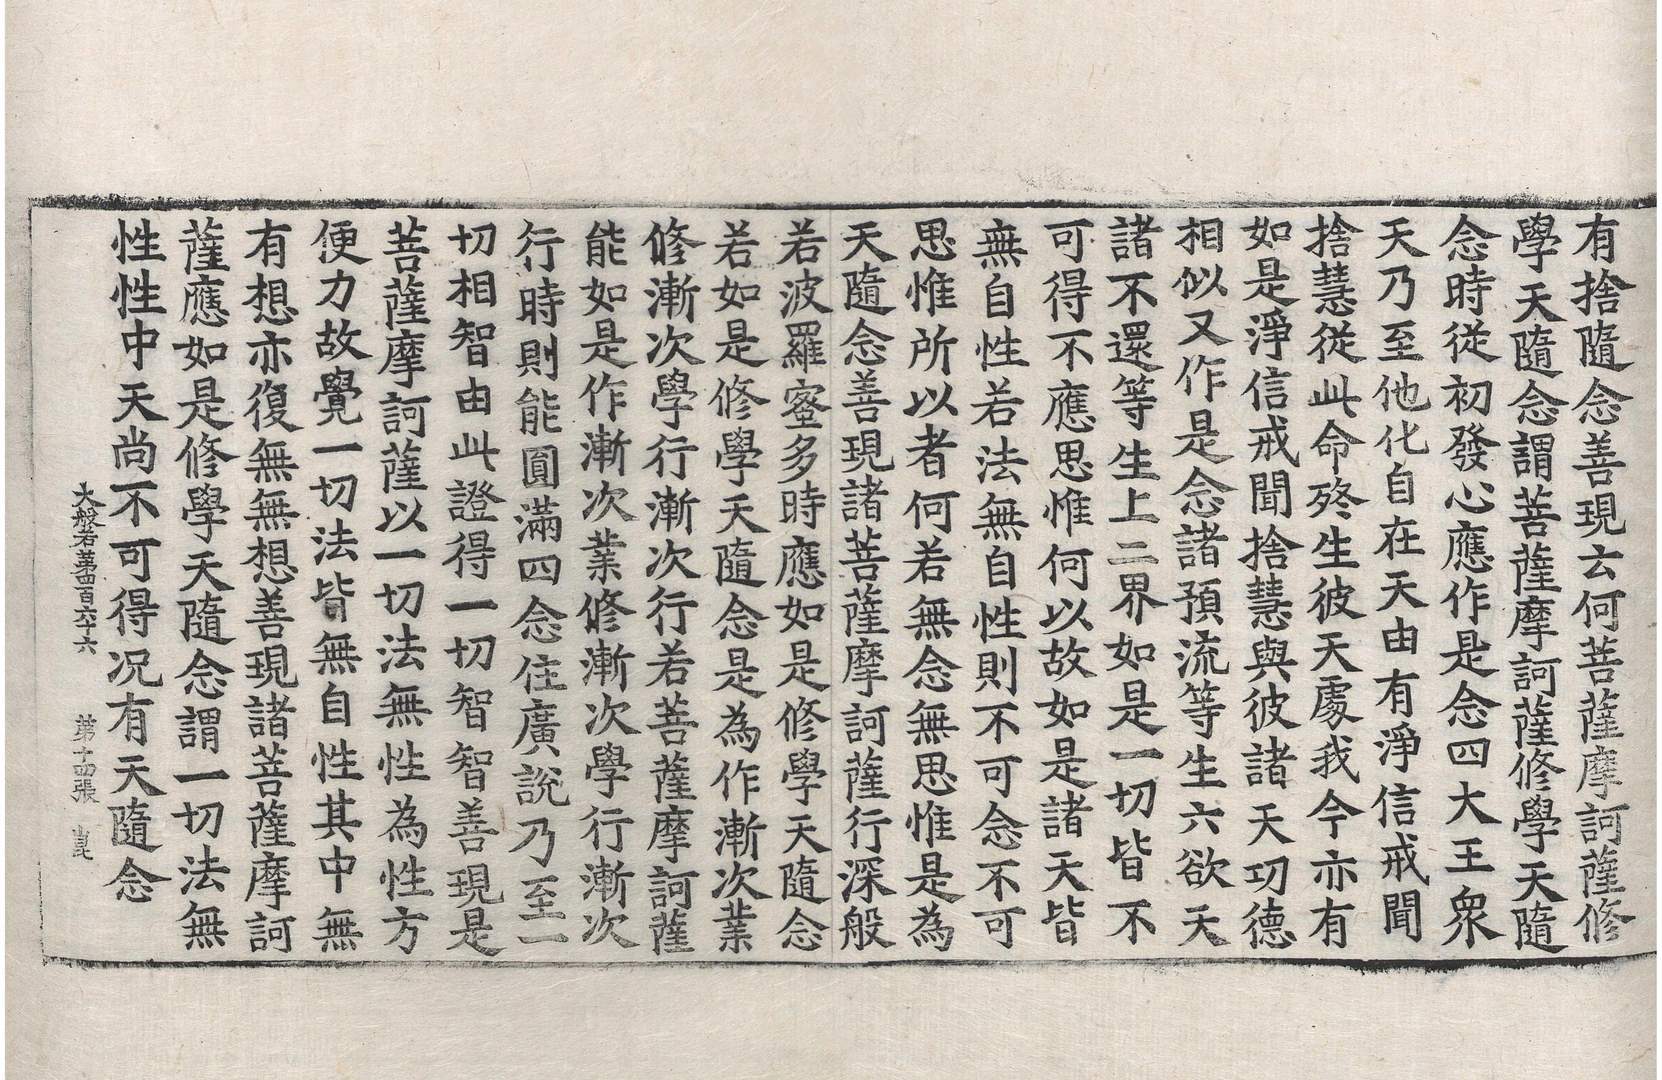 有捨隨念善現云何菩薩摩訶薩修
學天隨念謂菩薩摩訶薩修學天隨
念時從初發心應作是念四大王衆
天乃至他化自在天由有淨信戒聞
捨慧從此命終生彼天處我今亦有
如是淨信戒聞捨慧與彼諸天功德
相似又作是念諸預流等生六欲天
諸不還等生上二界如是一切皆不
可得不應思惟何以故如是諸天皆
無自性若法無自性則不可念不可
思惟所以者何若無念無思惟是為
天隨念善現諸菩薩摩訶薩行深般
若波羅蜜多時應如是修學天隨念
若如是修學天隨念是為作漸次業
修漸次學行漸次行若菩薩摩訶薩
能如是作漸次業修漸次學行漸次
行時則能圓滿四念住廣說乃至一
切相智由此證得一切智智善現是
菩薩摩訶薩以一切法無性為性方
便力故覺一切法皆無自性其中無
有想亦復無無想善現諸菩薩摩訶
薩應如是修學天隨念謂一切法無
性性中天尚不可得況有天隨念
大般若第四百六十六 第十四張 崑